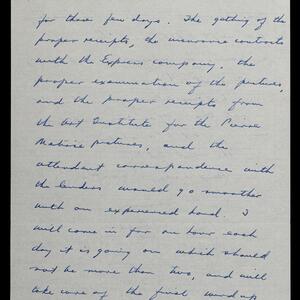 for those few days. The getting of the
proper receipts, the insurance contracts
with the Express company, the
proper examination of the pictures,
and the proper receipts from
the Art Institute for the Pierre
Matisse pictures, and the
attendant correspondence with
the lenders would go smoother
with an experienced hand. I
will come in for an hour each
day it is going on which should
not be more than two, and will
take care of the final wind up